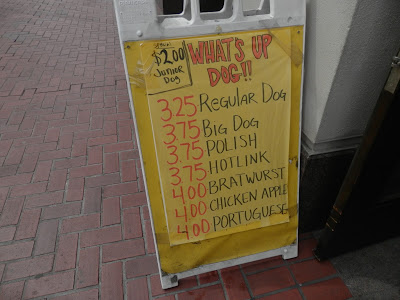 SPECIAL
$2.00
JUNIOR
DOG
WHAT'S UP
DOG!!
3.25 REGULAR DOG
3.75 BIG DOG
3.75 POLISH
3.75 HOTLINK
4.00 BRATWURST
4.00 CHICKEN APPLE
4.00 PORTUGUESE